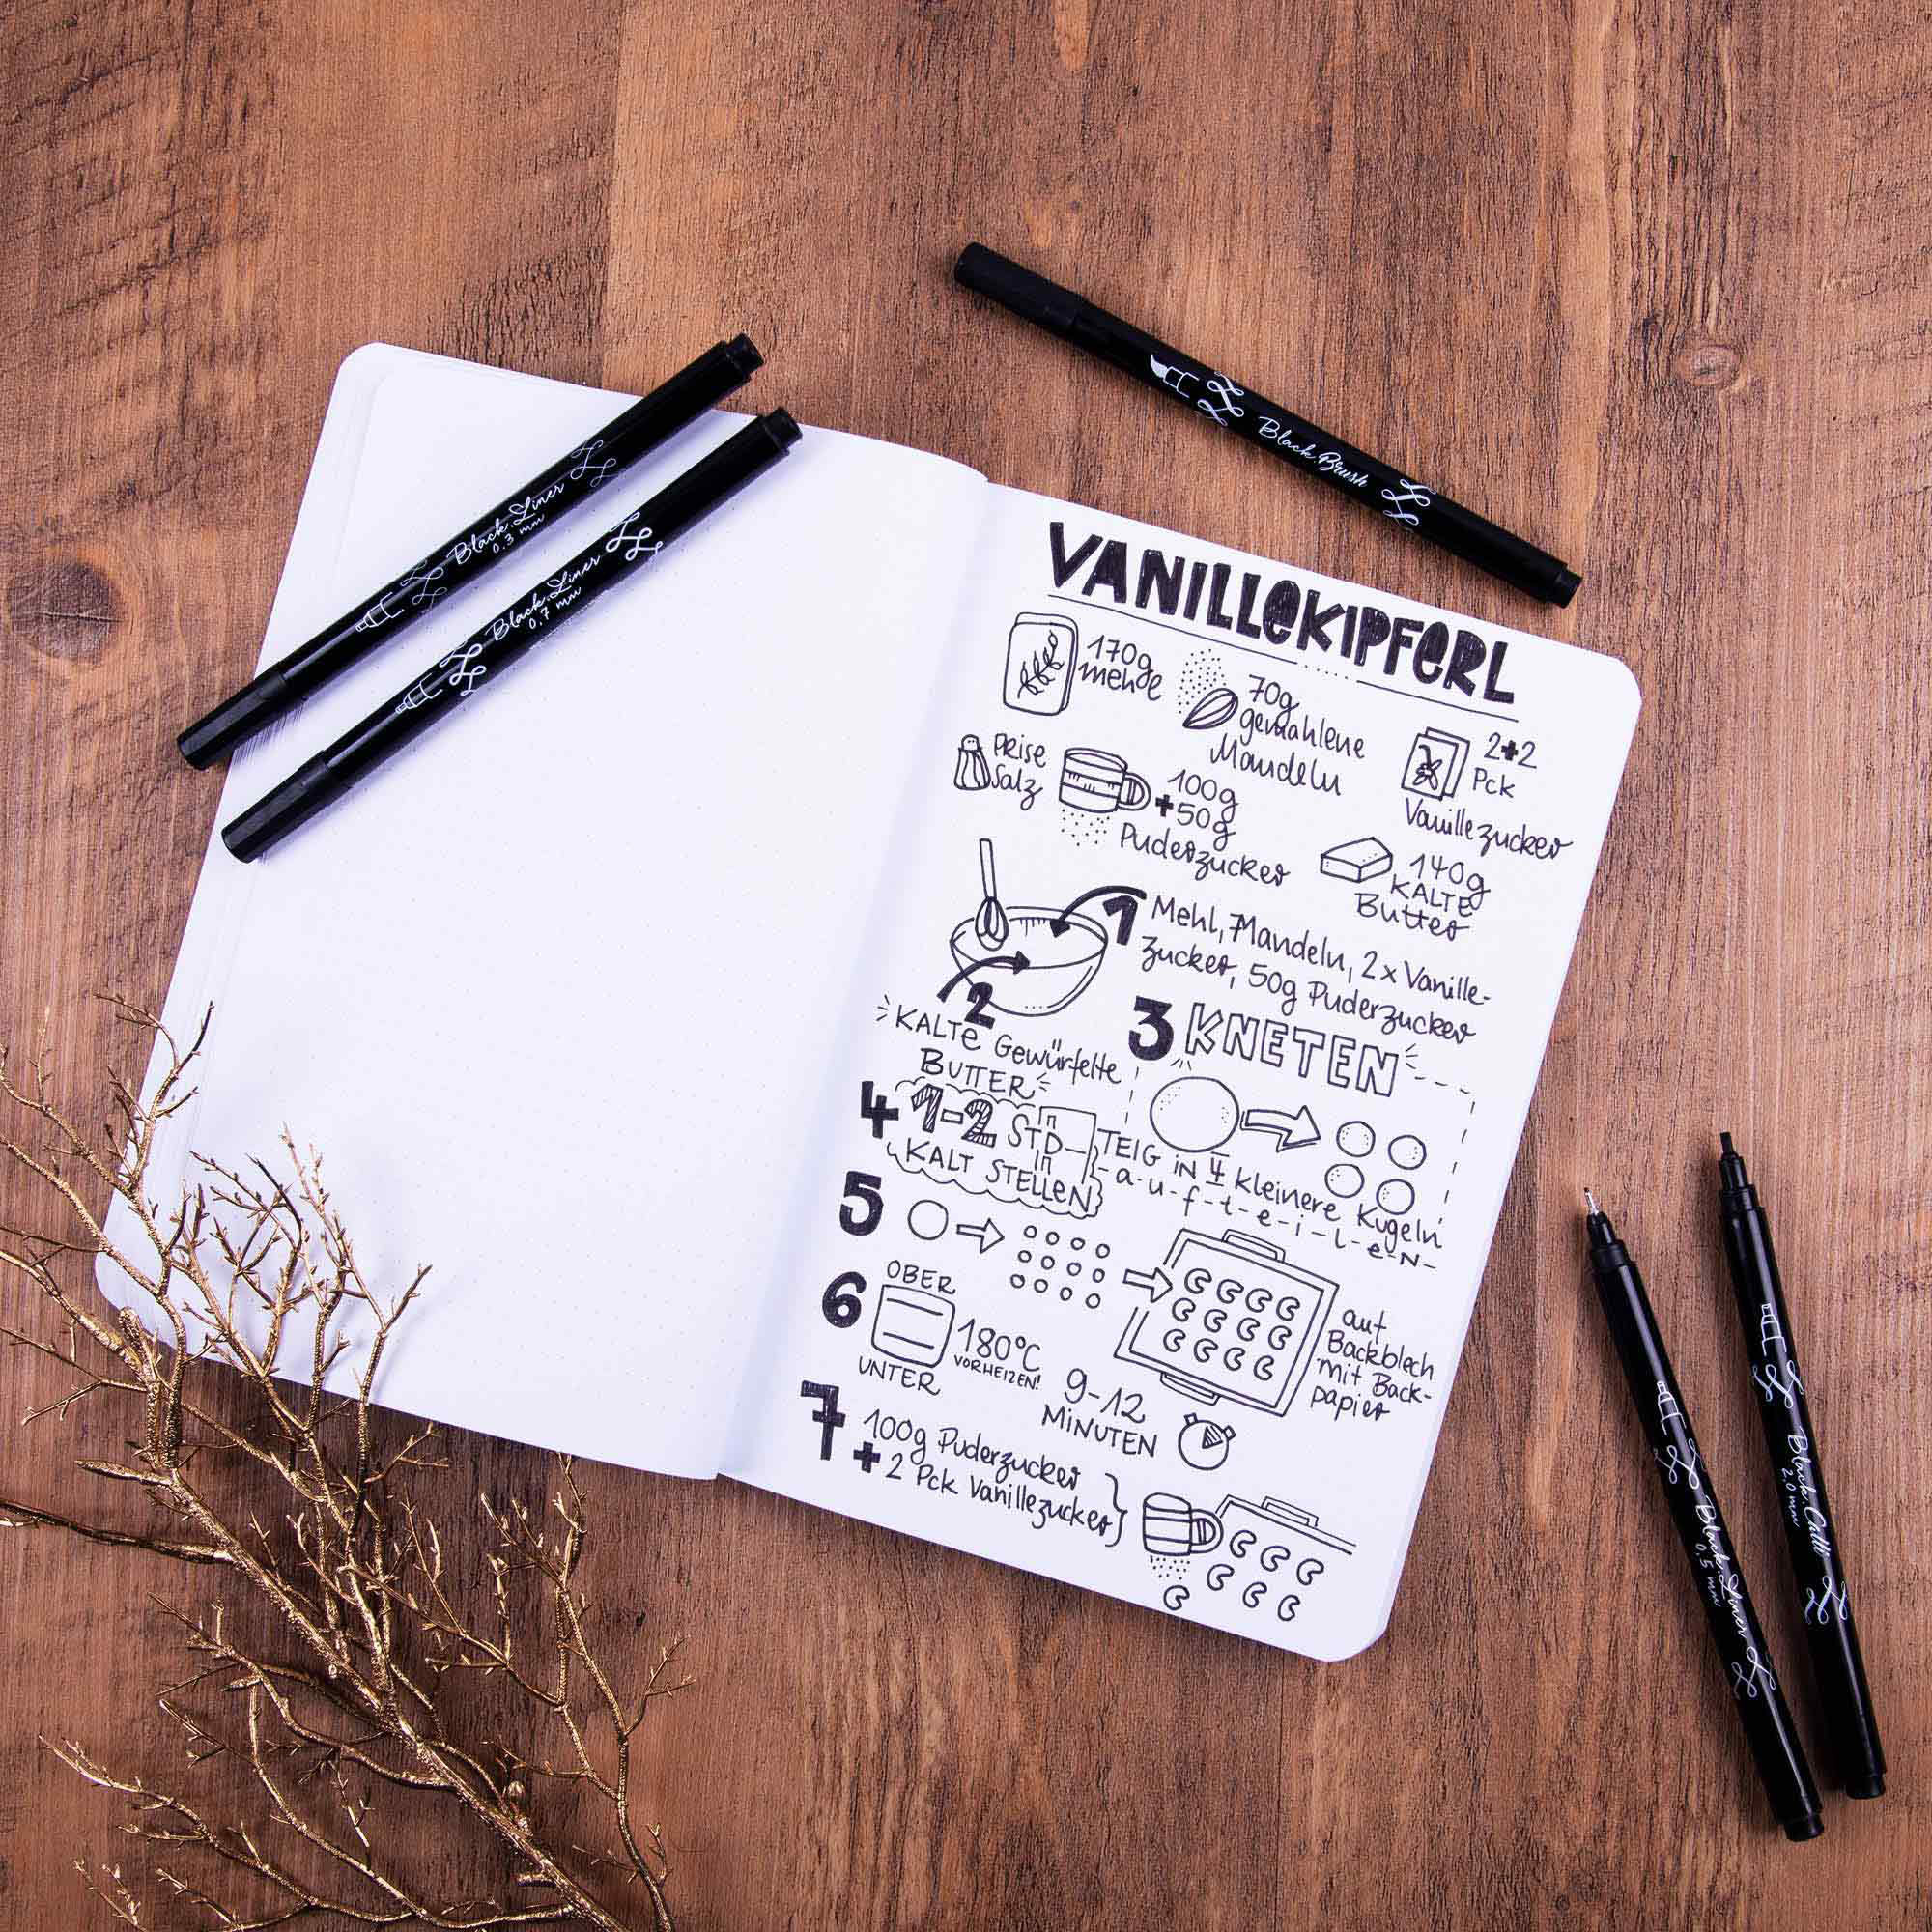 Black.Liner
0.3 mm
Black.Liner
0.7 mm
Black.Brush
VANILLEKIPFERL
170g
mehl
70g
gemahlene
Mandeln
2+2
Pck
Vanillezucker
PRISE
Salz
100g
+50g
Puderzucker
140g
KALTE
Butter
1 Mehl, Mandeln, 2x Vanille-
zucker, 50g Puderzucker
2
KALTE Gewürfelte
BUTTER
3 KNETEN
TEIG IN 4 kleinere Kugeln
-a-u-f-t-e-i-l-e-N-
4 1-2 STD
KALT STELLEN
5
auf
Backblech
mit Back-
papier
6 OBER
UNTER
180°C
VORHEIZEN!
9-12
MINUTEN
7 100g Puderzucker
+ 2 Pck Vanillezucker
Black.Liner
0.5 mm
Black.Calli
2.0 mm